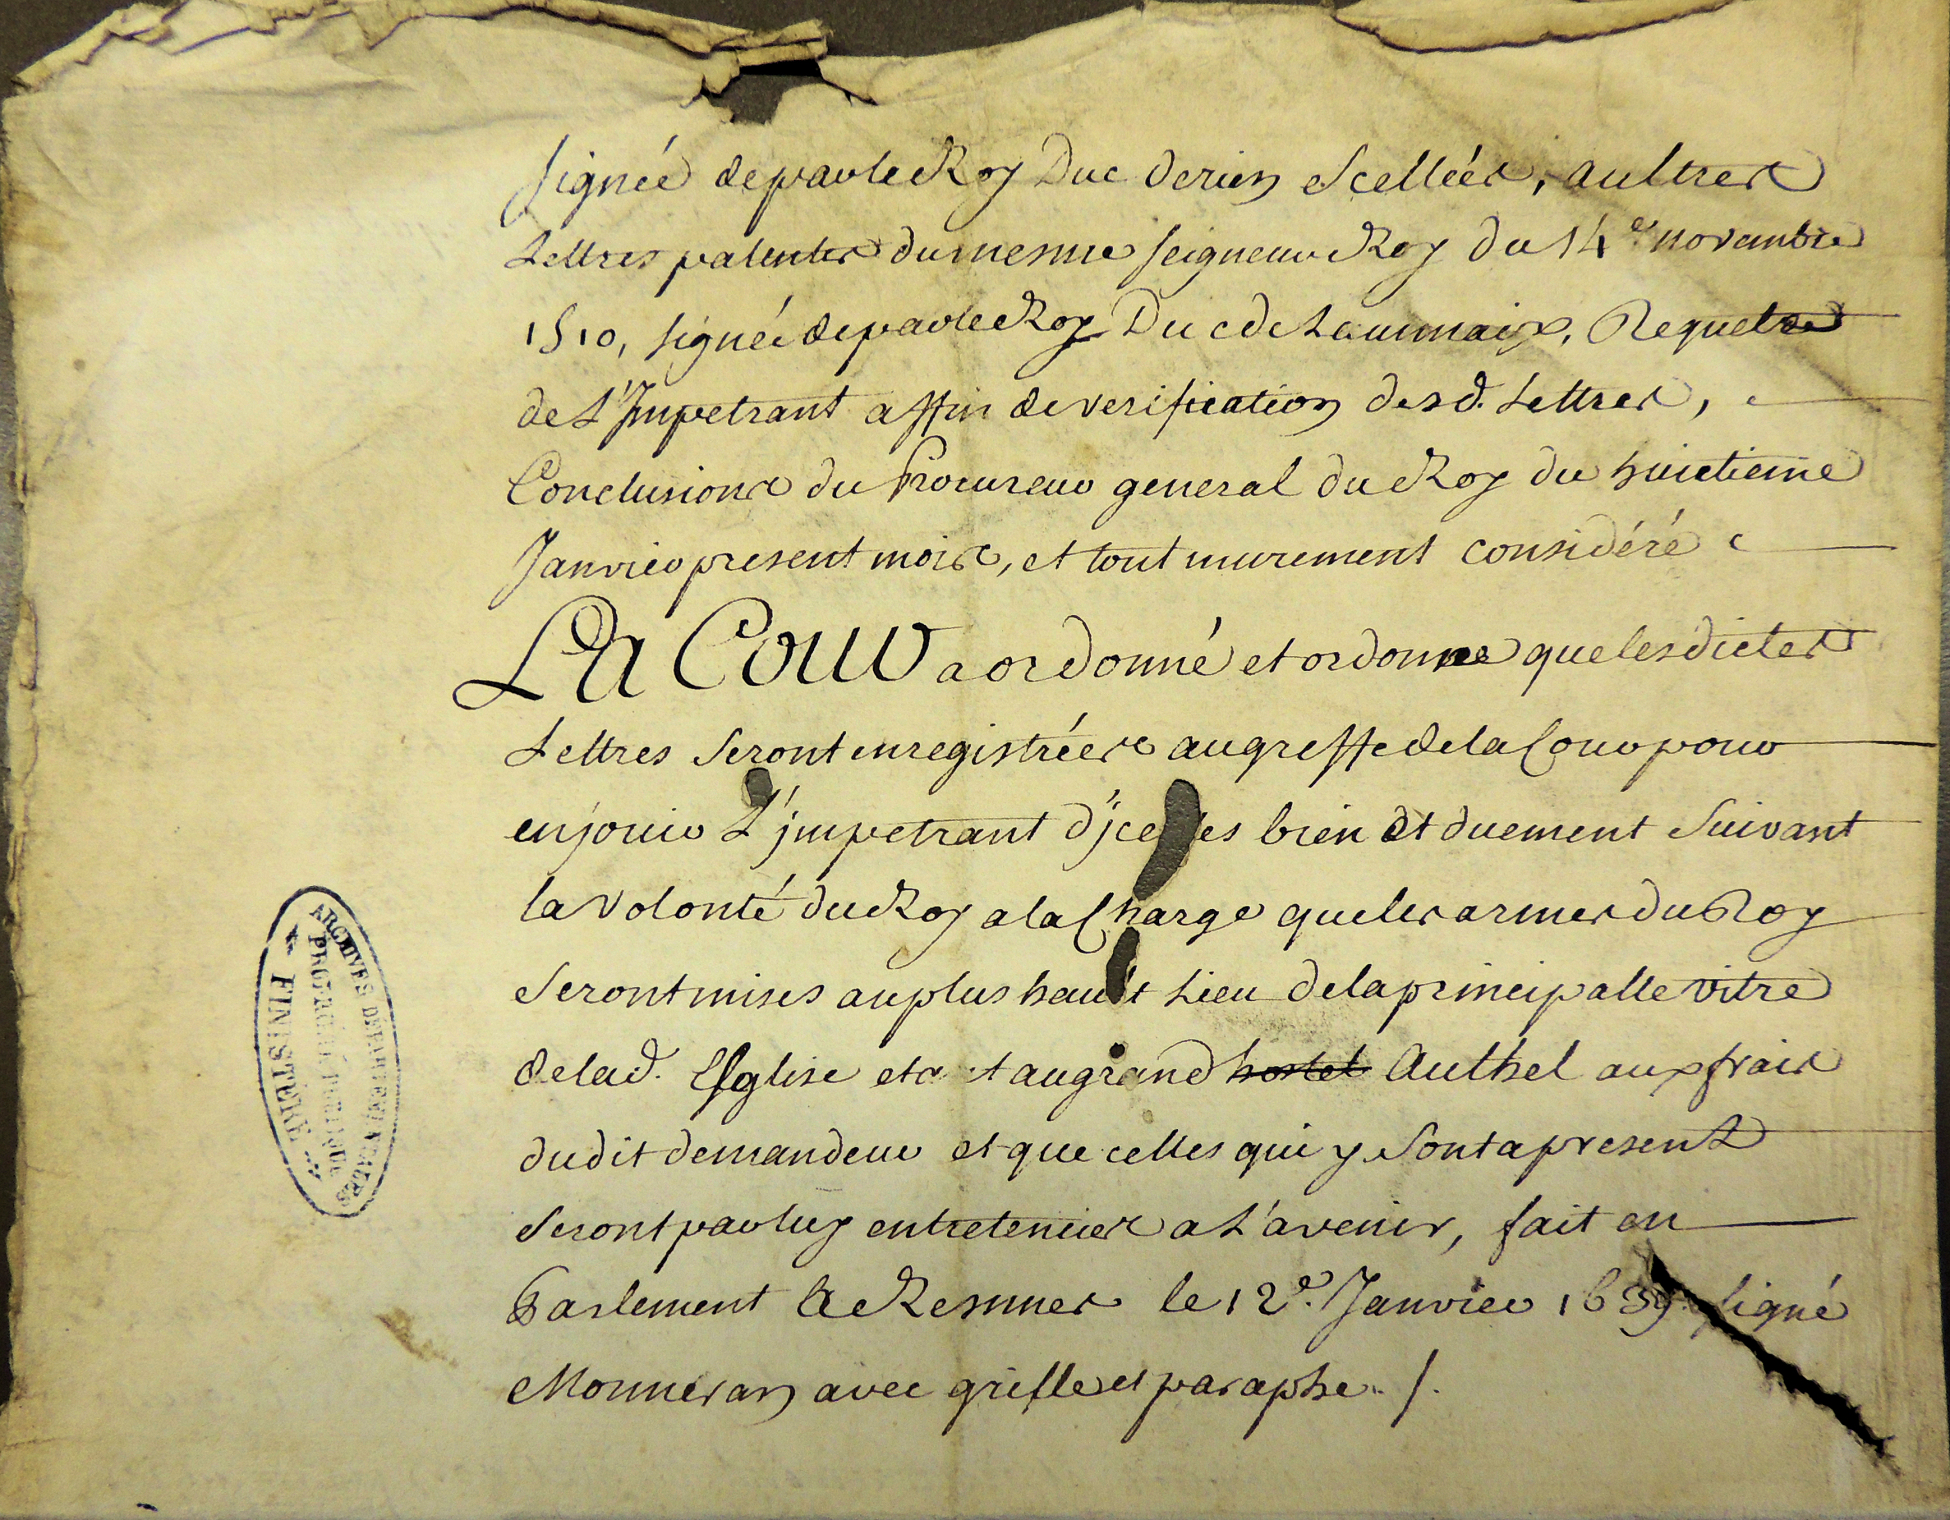 signée de par le Roy Duc derien Scellées, aultres
Lettres patentes du mesme seigneur Roy du 14e novembre
1510, signée de par le Roy Duc de Laumaix, Requeste
de L'Impetrant affin de verification desd. Lettres,
Conclusions du Procureur general du Roy du huictieme
Janvier present mois, et tout murement considéré
La Cour a ordonné et ordonne que lesdictes
Lettres Seront enregistrées au greffe de la Cour pour
en jouir L'impetrant d'jcelles bien et duement Suivant
la volonté du Roy a la Charge que les armes du Roy
Seront mises au plus hault Lieu de la principalle vitre
de lad. Esglise et au grand hostel Authel aux frais
dudit demandeur et que celles qui y Sont a present
Seront par luy entretenües a L'avenir, fait en
Parlement A Rennes le 12e. Janvier 1639 signé
Monneran avec griffe et paraphe. /.
ARCHIVES DÉPARTEMENTALES
PROPRIÉTÉ PUBLIQUE
FINISTÈRE